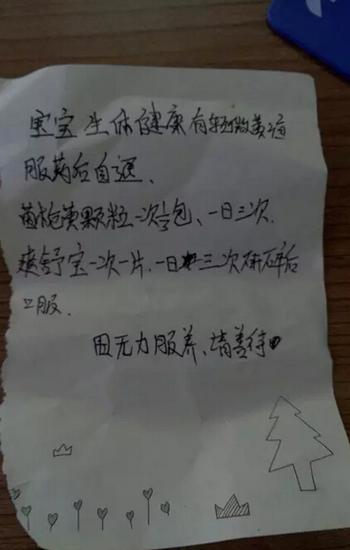 宝宝生体健康有轻微黄疸
服药后自退、
茵栀黄颗粒一次半包、一日三次.
爽舒宝一次一片.一日三次研碎后
口服.
因无力服养、请善待